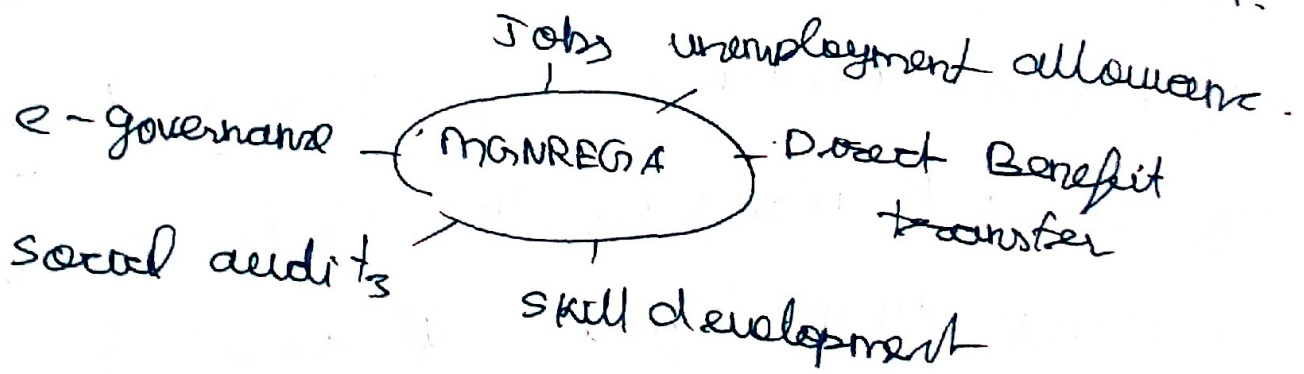 Jobs unemployment allowance.
e-governance MGNREGA Direct Benefit
transfer
social audits
skill development